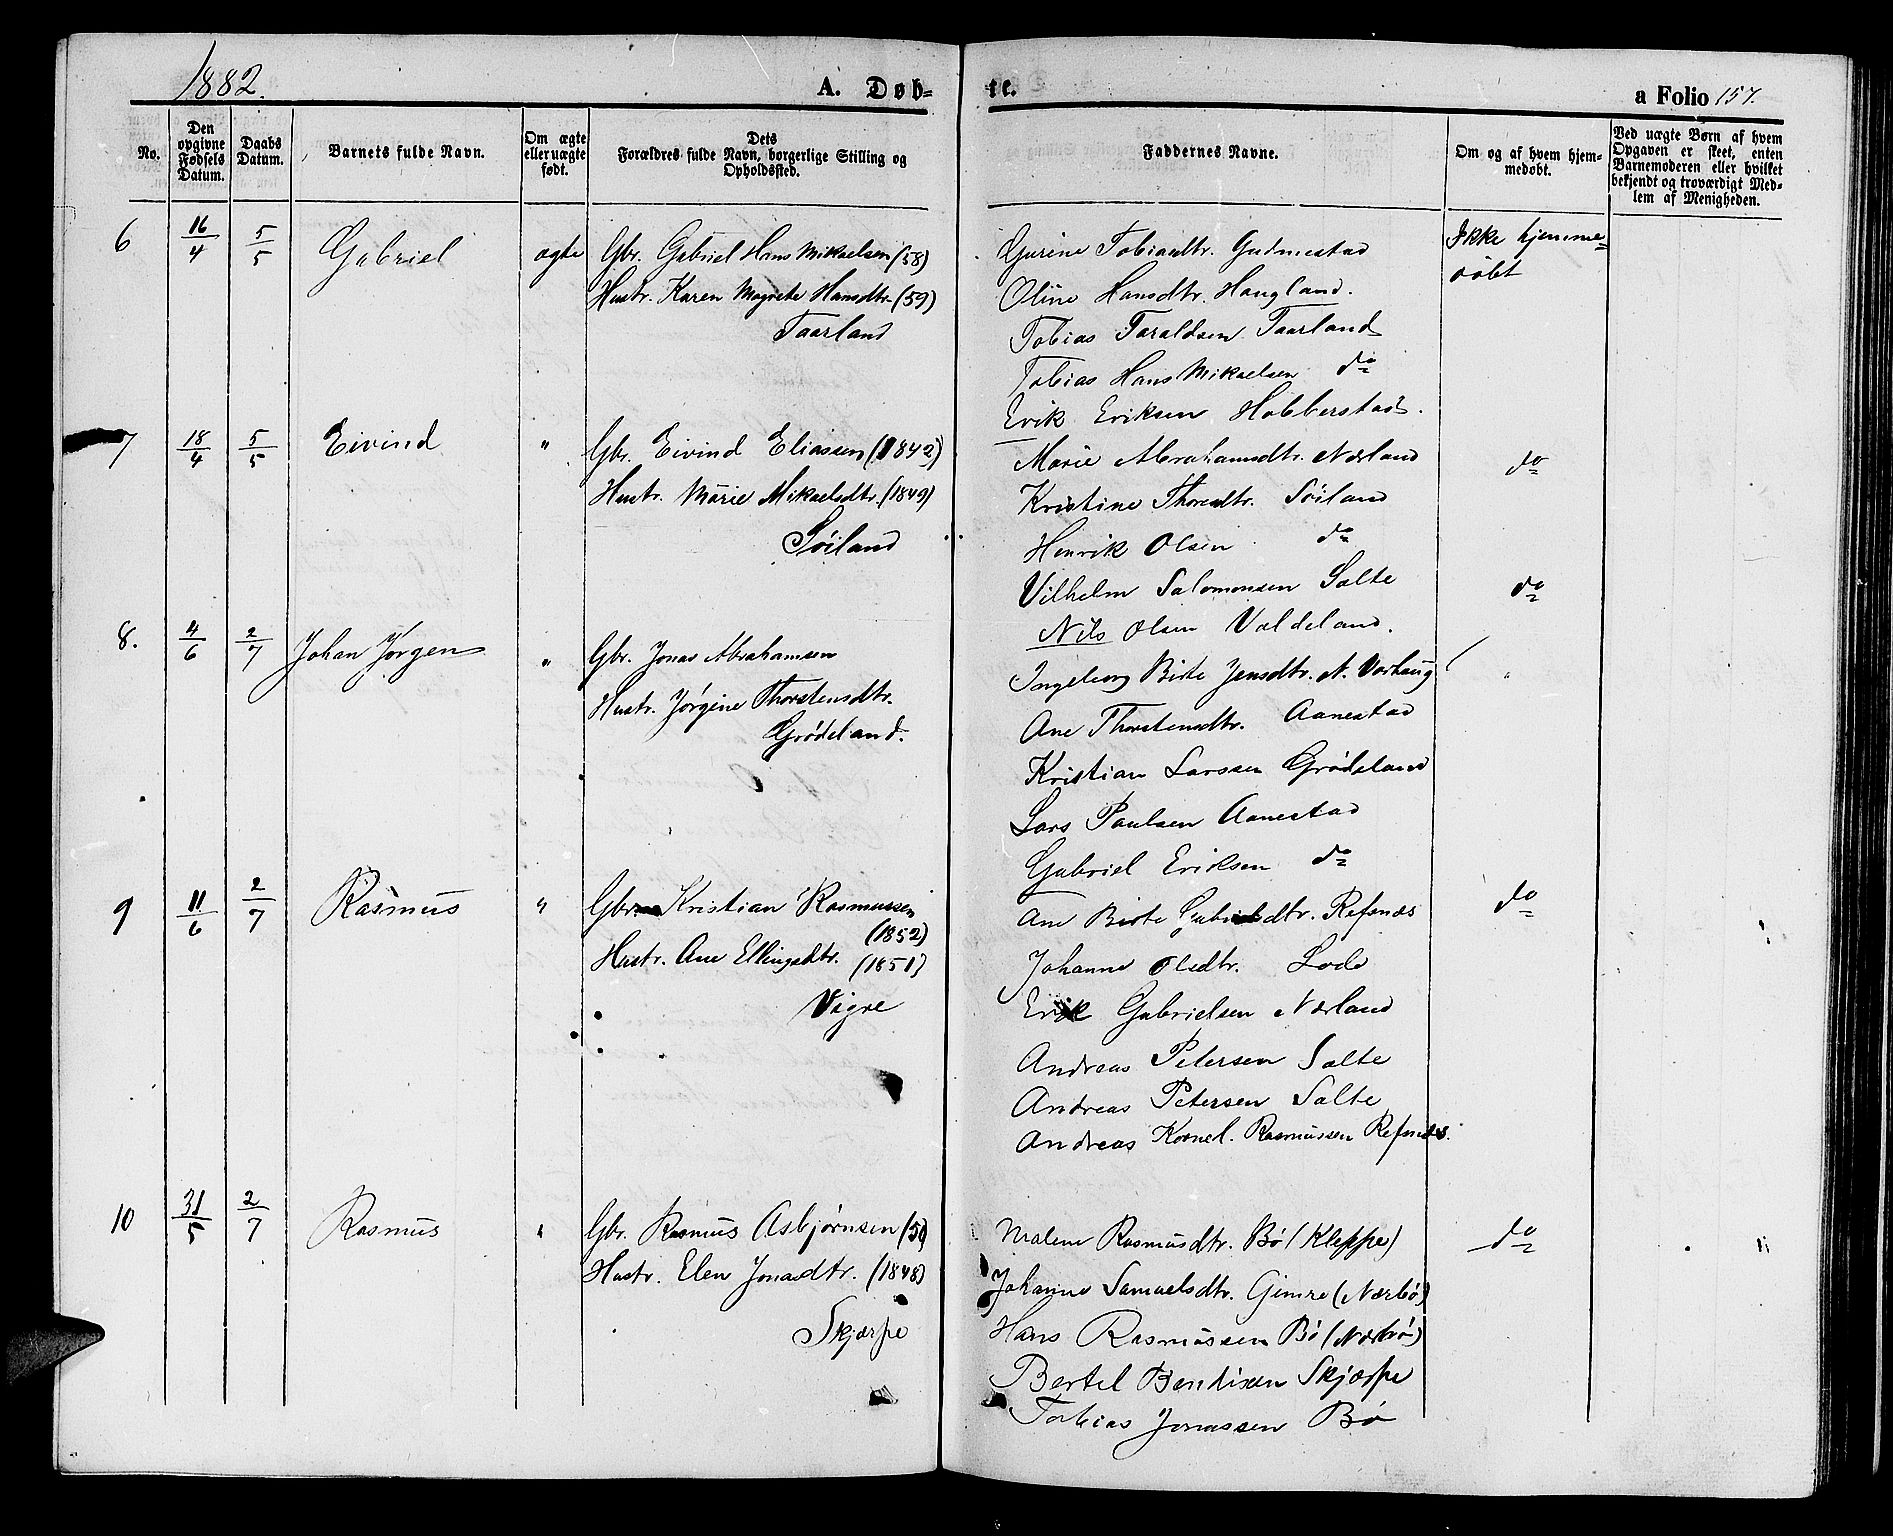 1882. A. Døb- te. a Folio 157.
No.
Den opgivne Fødsels Datum.
Daabs Datum.
Barnets fulde Navn.
Om ægte eller uægte født.
Dets Forældres fulde Navn, borgerlige Stilling og Opholdssted.
Faddernes Navne.
Om og af hvem hjem-
medøbt.
Ved uægte Børn af hvem
Opgaven er skeet, enten
Barnemoderen eller hvilket
bekjendt og troværdigt Med-
lem af Menigheden.
6 16/4 5/5 Gabriel ægte
Gbr. Gabriel Hans Mikaelsen (58)
Hustr. Karen Magrete Hansdtr. (59)
Taarland
Gurine Tobiasdtr. Gudmestad
Oline Hansdtr. Haugland.
Tobias Taraldsen Taarland
Tobias Hans Mikaelsen do
Erik Eriksen Hobberstad.
Ikke hjemme-
døbt
7 18/4 5/5 Eivind "
Gbr. Eivind Eliassen (1842)
Hustr. Marie Mikaelsdtr. (1849)
Söiland
Marie Abrahamsdtr. Nærland
Kristine Thoresdtr. Söiland
Henrik Olsen do
Vilhelm Salomonsen Salte
Nils Olsen Valdeland.
do
do
8. 4/6 2/7 Johan Jörgen "
Gbr. Jonas Abrahamsen
Hustr. Jörgine Thorstensdtr.
Grödeland.
Ingeborg Birte Jensdtr. N. Varhaug
Ane Thorstensdtr. Aanestad
Kristian Larssen Grödeland
Lars Paulsen Aanestad
Gabriel Eriksen do
"
9 11/6 2/7 Rasmus "
Gbr. Kristian Rasmussen
(1852)
Hustr. Ane Ellingsdtr. (1851)
Vigre
Ane Birte Gabrielsdtr. Refsnæs
Johanne Olsdtr. Lode
Erik Gabrielsen Nærland
Andreas Petersen Salte
Andreas Petersen Salte
Andreas Kornel. Rasmussen Refsnæs.
do
10 31/5 2/7 Rasmus "
Gbr. Rasmus Asbjörnsen (50)
Hustr. Elen Jonasdtr. (1848)
Skjærpe
Malene Rasmusdtr. Bö (Kleppe)
Johanne Samuelsdtr. Gimre (Nærbö)
Hans Rasmussen Bö (Nærbö)
Bertel Bendixen Skjærpe
Tobias Jonassen Bö
do